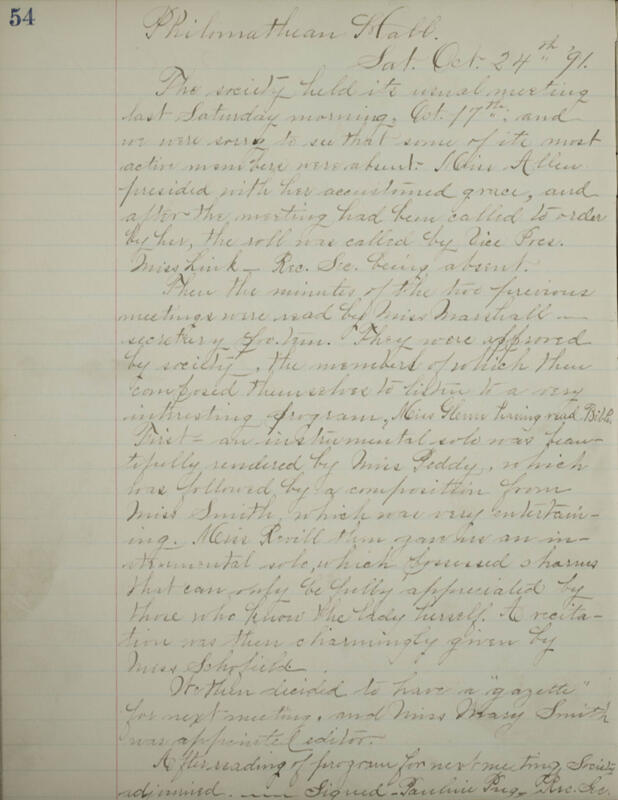 54
Philomathean Hall.
Sat. Oct. 24th '91.
The society held its usual meeting
last Saturday morning, Oct. 17th, and
we were sorry to see that some of its most
active members were absent. Miss Allen
presided with her accustomed grace, and
after the meeting had been called to order
by her, the roll was called by Vice Pres.
Miss Link – Rec. Sec. being absent.
Then the minutes of the two previous
meetings were read by Miss Marshall –
secretary pro. tem. They were approved
by society, the members of which then
composed themselves to listen to a very
interesting program, Miss Glenn having read Bible.
First – an instrumental solo was beau-
tifully rendered by Miss Peddy, which
was followed by a composition from
Miss Smith, which was very entertain-
ing. Miss Revill then gave us an in-
strumental solo, which possessed charms
that can only be fully appreciated by
those who know the lady herself. A recita-
tion was then charmingly given by
Miss Schofield.
We then decided to have a "gazette"
for next meeting, and Miss Mary Smith
was appointed editor.
After reading of program for next meeting, Society
adjourned. — Signed – Pauline – Rec. Sec.